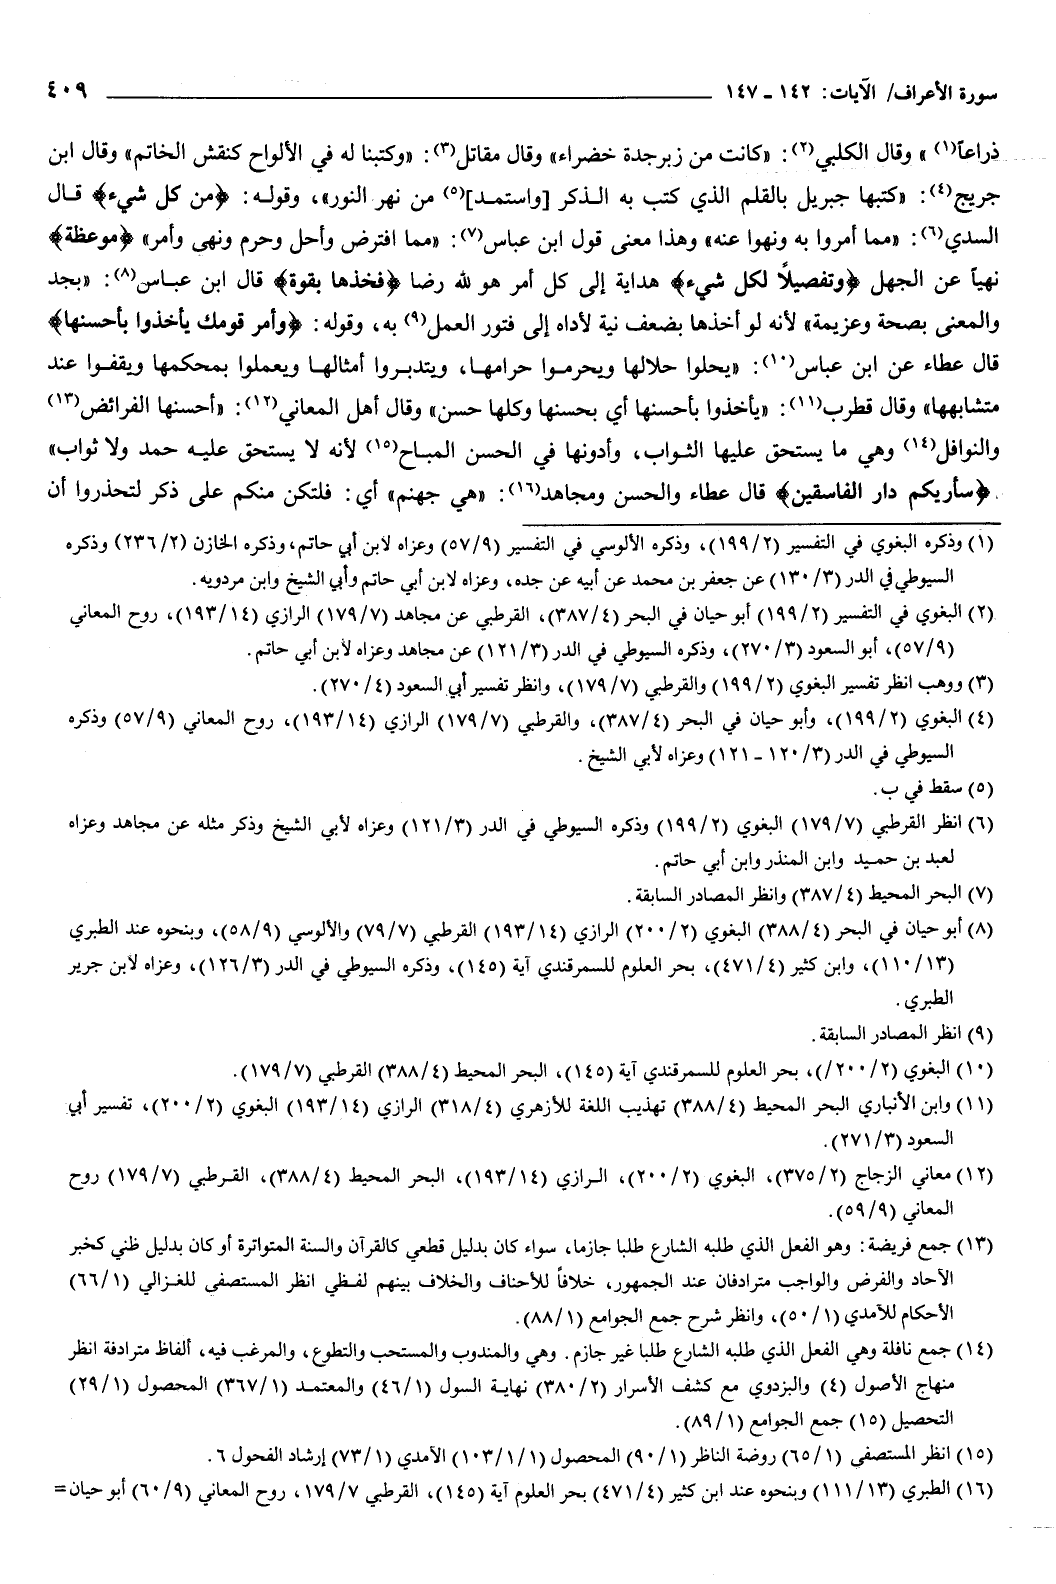 سورة الأعراف/ الآيات: ١٤٢ - ١٤٧ ٤٠٩
ذراعاً(١)» وقال الكلبي(٢): «كانت من زبرجدة خضراء» وقال مقاتل(٣): «وكتبنا له في الألواح كنقش الخاتم» وقال ابن
جريج(٤): «كتبها جبريل بالقلم الذي كتب به الذكر [واستمد](٥) من نهر النور»، وقوله: ﴿من كل شيء﴾ قال
السدي(٦): «مما أمروا به ونهوا عنه» وهذا معنى قول ابن عباس(٧): «مما افترض وأحل وحرم ونهى وأمر» ﴿موعظة﴾
نهياً عن الجهل ﴿وتفصيلاً لكل شيء﴾ هداية إلى كل أمر هو لله رضا ﴿فخذها بقوة﴾ قال ابن عباس(٨): «بجد
والمعنى بصحة وعزيمة» لأنه لو أخذها بضعف نية لأداه إلى فتور العمل(٩) به، وقوله: ﴿وأمر قومك يأخذوا بأحسنها﴾
قال عطاء عن ابن عباس(١٠): «يحلوا حلالها ويحرموا حرامها، ويتدبروا أمثالها ويعملوا بمحكمها ويقفوا عند
متشابهها» وقال قطرب(١١): «يأخذوا بأحسنها أي بحسنها وكلها حسن» وقال أهل المعاني(١٢): «أحسنها الفرائض(١٣)
والنوافل(١٤) وهي ما يستحق عليها الثواب، وأدونها في الحسن المباح(١٥) لأنه لا يستحق عليه حمد ولا ثواب»
﴿سأريكم دار الفاسقين﴾ قال عطاء والحسن ومجاهد(١٦): «هي جهنم» أي: فلتكن منكم على ذكر لتحذروا أن
(١) وذكره البغوي في التفسير (١٩٩/٢)، وذكره الألوسي في التفسير (٥٧/٩) وعزاه لابن أبي حاتم، وذكره الخازن (٢٣٦/٢) وذكره
السيوطي في الدر (١٣٠/٣) عن جعفر بن محمد عن أبيه عن جده، وعزاه لابن أبي حاتم وأبي الشيخ وابن مردويه.
(٢) البغوي في التفسير (١٩٩/٢) أبو حيان في البحر (٣٨٧/٤)، القرطبي عن مجاهد (١٧٩/٧) الرازي (١٩٣/١٤)، روح المعاني
(٥٧/٩)، أبو السعود (٢٧٠/٣)، وذكره السيوطي في الدر (١٢١/٣) عن مجاهد وعزاه لابن أبي حاتم.
(٣) ووهب انظر تفسير البغوي (١٩٩/٢) والقرطبي (١٧٩/٧)، وانظر تفسير أبي السعود (٢٧٠/٤).
(٤) البغوي (١٩٩/٢)، وأبو حيان في البحر (٣٨٧/٤)، والقرطبي (١٧٩/٧) الرازي (١٩٣/١٤)، روح المعاني (٥٧/٩) وذكره
السيوطي في الدر (١٢٠/٣ - ١٢١) وعزاه لأبي الشيخ.
(٥) سقط في ب.
(٦) انظر القرطبي (١٧٩/٧) البغوي (١٩٩/٢) وذكره السيوطي في الدر (١٢١/٣) وعزاه لأبي الشيخ وذكر مثله عن مجاهد وعزاه
لعبد بن حميد وابن المنذر وابن أبي حاتم.
(٧) البحر المحيط (٣٨٧/٤) وانظر المصادر السابقة.
(٨) أبو حيان في البحر (٣٨٨/٤) البغوي (٢٠٠/٢) الرازي (١٩٣/١٤) القرطبي (٧٩/٧) والألوسي (٥٨/٩)، وبنحوه عند الطبري
(١١٠/١٣)، وابن كثير (٤٧١/٤)، بحر العلوم للسمرقندي آية (١٤٥)، وذكره السيوطي في الدر (١٢٦/٣)، وعزاه لابن جرير
الطبري.
(٩) انظر المصادر السابقة.
(١٠) البغوي (٢٠٠/٢/)، بحر العلوم للسمرقندي آية (١٤٥)، البحر المحيط (٣٨٨/٤) القرطبي (١٧٩/٧).
(١١) وابن الأنباري البحر المحيط (٣٨٨/٤) تهذيب اللغة للأزهري (٣١٨/٤) الرازي (١٩٣/١٤) البغوي (٢٠٠/٢)، تفسير أبي
السعود (٢٧١/٣).
(١٢) معاني الزجاج (٣٧٥/٢)، البغوي (٢٠٠/٢)، الرازي (١٩٣/١٤)، البحر المحيط (٣٨٨/٤)، القرطبي (١٧٩/٧) روح
المعاني (٥٩/٩).
(١٣) جمع فريضة: وهو الفعل الذي طلبه الشارع طلبا جازما، سواء كان بدليل قطعي كالقرآن والسنة المتواترة أو كان بدليل ظني كخبر
الآحاد والفرض والواجب مترادفان عند الجمهور، خلافاً للأحناف والخلاف بينهم لفظي انظر المستصفى للغزالي (٦٦/١)
الأحكام للآمدي (٥٠/١)، وانظر شرح جمع الجوامع (٨٨/١).
(١٤) جمع نافلة وهي الفعل الذي طلبه الشارع طلبا غير جازم. وهي والمندوب والمستحب والتطوع، والمرغب فيه، ألفاظ مترادفة انظر
منهاج الأصول (٤) والبزدوي مع كشف الأسرار (٣٨٠/٢) نهاية السول (٤٦/١) والمعتمد (٣٦٧/١) المحصول (٢٩/١)
التحصيل (١٥) جمع الجوامع (٨٩/١).
(١٥) انظر المستصفى (٦٥/١) روضة الناظر (٩٠/١) المحصول (١٠٣/١/١) الآمدي (٧٣/١) إرشاد الفحول ٦.
(١٦) الطبري (١١١/١٣) وبنحوه عند ابن كثير (٤٧١/٤) بحر العلوم آية (١٤٥)، القرطبي ١٧٩/٧، روح المعاني (٦٠/٩) أبو حيان=